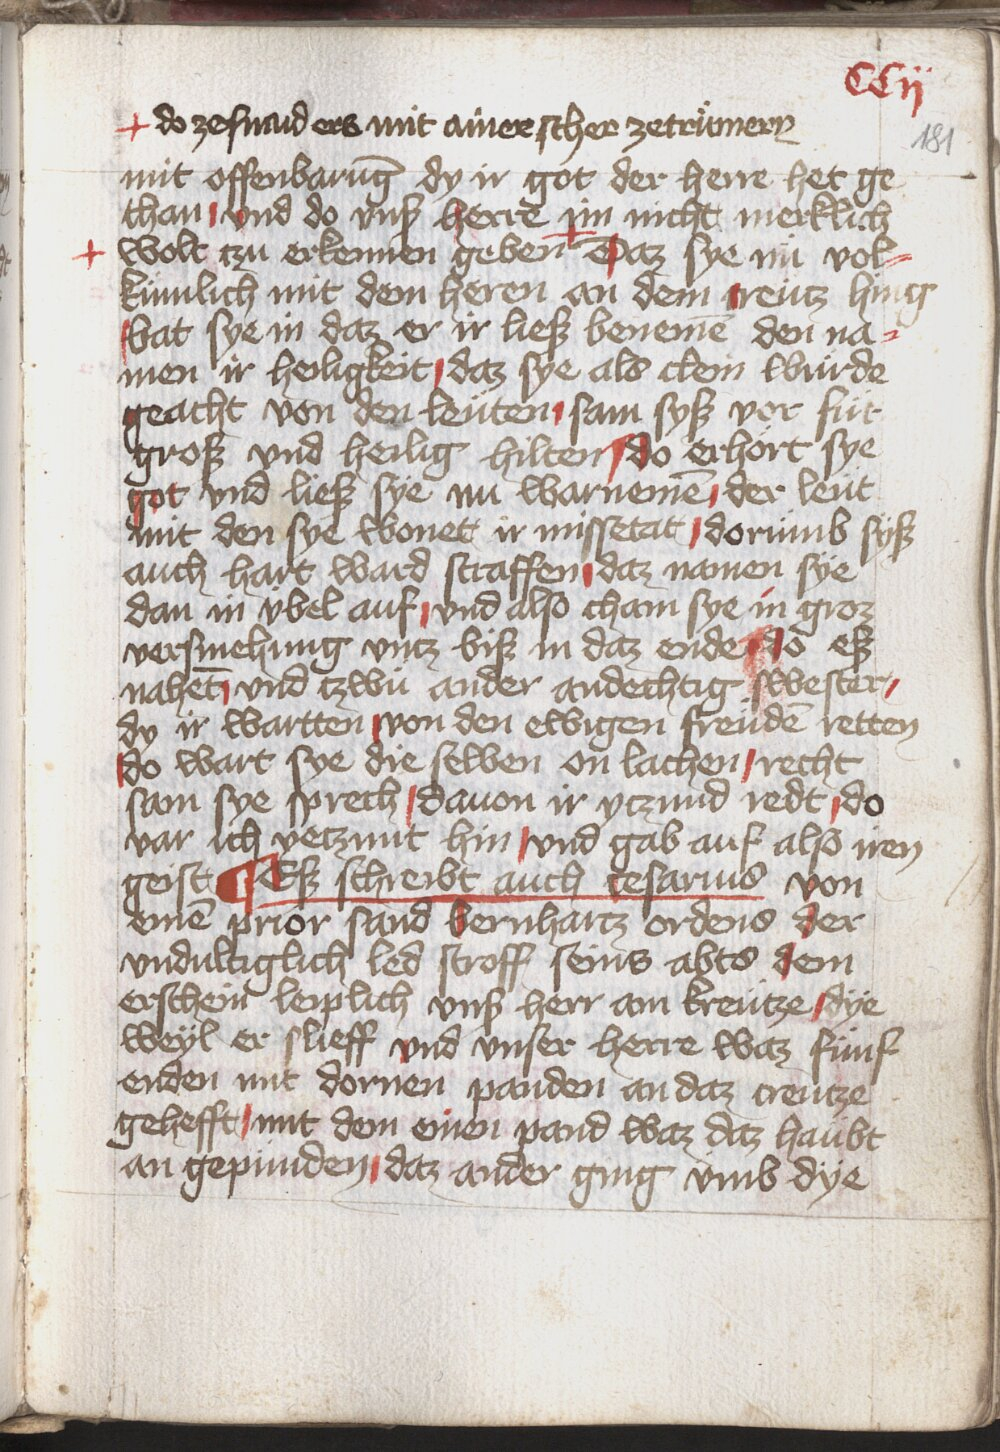 CCij
181
+ do zesnaid ers mit ainer scher ze trümern
mit offenbarūg dy ir got der herre het ge
than und do unß herre im nicht merklich
+ wolt tzu erkennen geben + Daz sye nu vol-
kümlich mit dem heren an dem creutz hing
bat sye in daz er ir ließ benemē den na-
men ir heiligkeit daz sye als clein würde
geacht von den leüten sam syß vor für
groß und heilig hilten do erhört sye
got und ließ sye nu warnemē der leüt
mit den sye wonet ir missetat dorümb syß
auch hart ward straffen daz namen sye
dan in übel auf und also cham sye in groz
versmehung untz biß in daz ende do eß
nahet und tzwu ander andechtig swester
dy ir wartten von den ewigen freüdē retten
do wart sye die selben on lachen recht
sam sye sprech davon ir ytzund redt do
var ich yetzunt hin und gab auf also iren
geist ¶ Eß schreibt auch cesarius von
einē prior sand bernhartz ordens der
undultiglich led stroff seins abts dem
erschein leiplich unß herr am kreütze dye
weyl er slieff und unser herre waz fünf
enden mit dornen panden an daz creutze
gehefft mit dem einen pand waz daz haubt
an gepunden daz ander ging umb dye